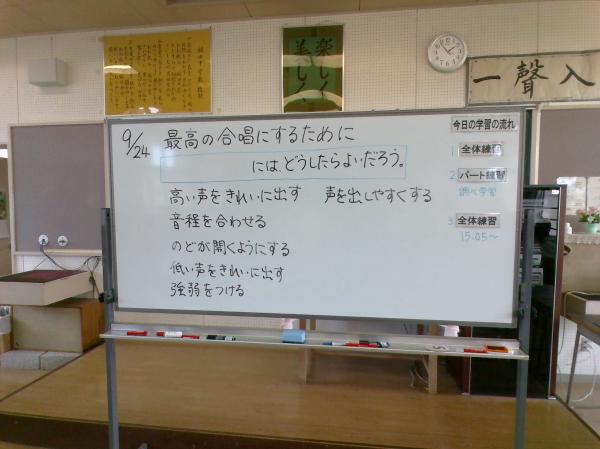 楽しく
美しく
一聲入
9/24 最高の合唱にするために
には、どうしたらよいだろう。
高い声をきれいに出す 声を出しやすくする
音程を合わせる
のどが開くようにする
低い声をきれいに出す
強弱をつける
今日の学習の流れ
1 全体練習
2 パート練習
調べ学習
3 全体練習
15:05〜